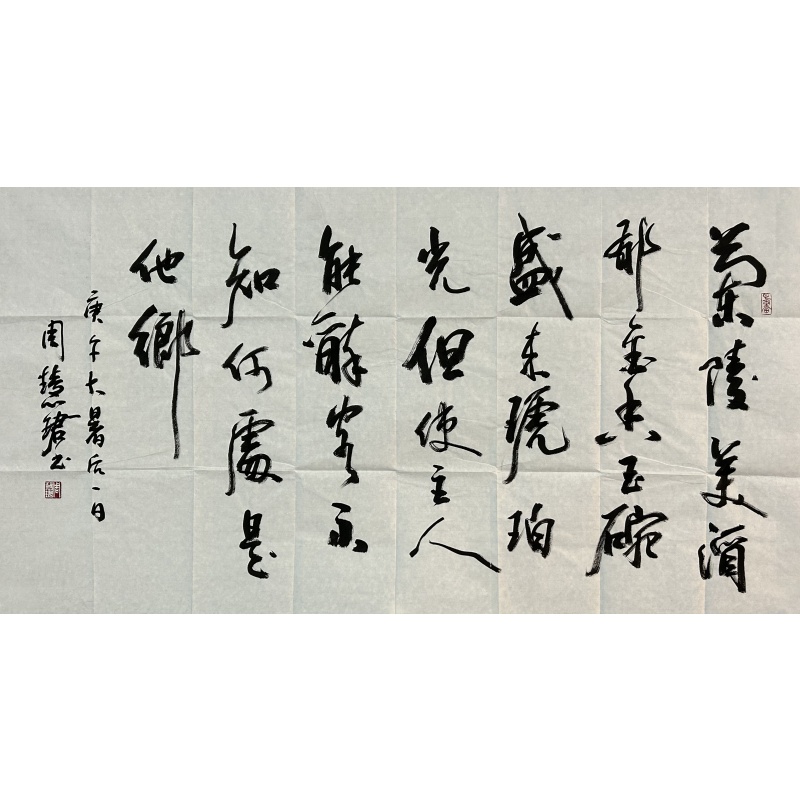 蘭陵美酒
郁金香玉碗
盛来琥珀
光但使主人
能醉客不
知何處是
他鄉
庚午大暑后一日
周慧珺书